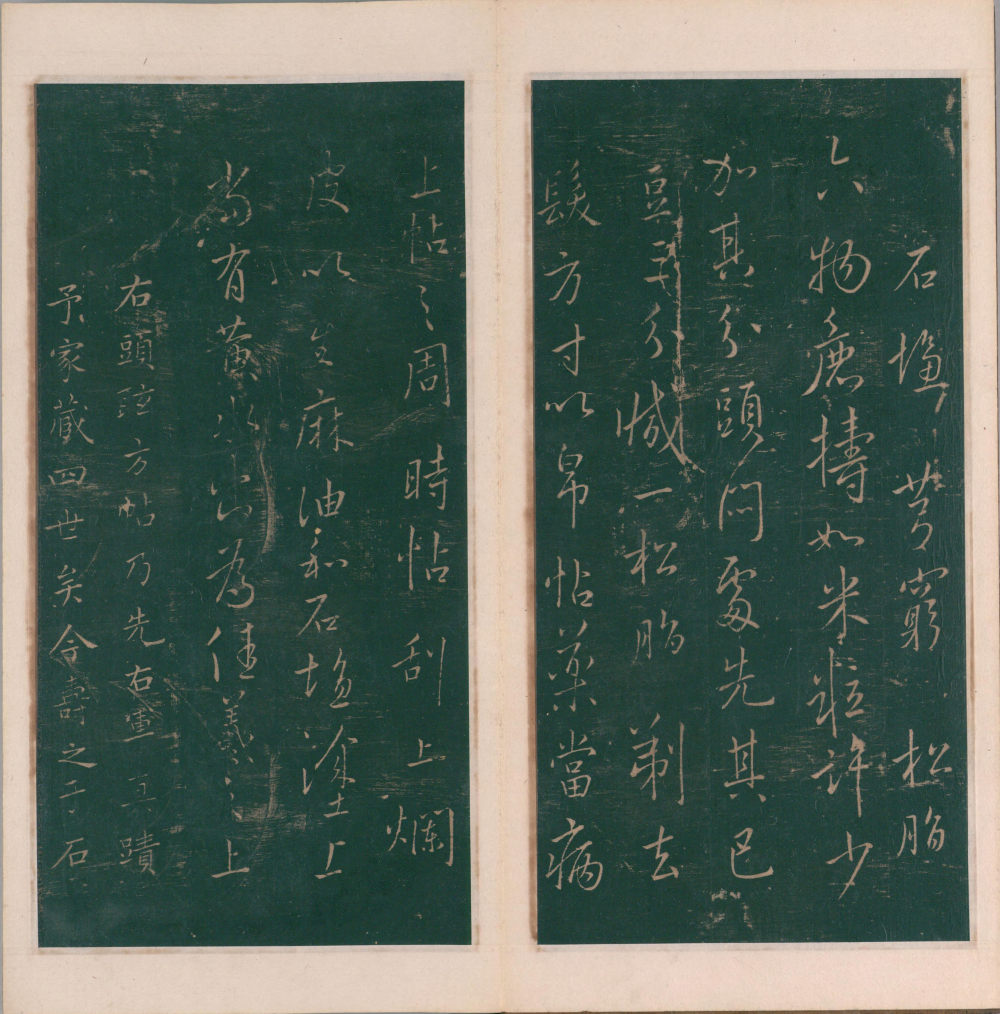 石塩芎窮松脂
六物麁擣如米粒許少
加其分頭悶處先其已
豆三分減一松脂剃去
髮方寸以帛帖藥當病
上帖之周時帖刮上爛
皮以生麻油和石塩塗上
當有黃水出為佳羲之上
右頭眩方帖乃先右軍真蹟
予家藏四世矣今壽之于石